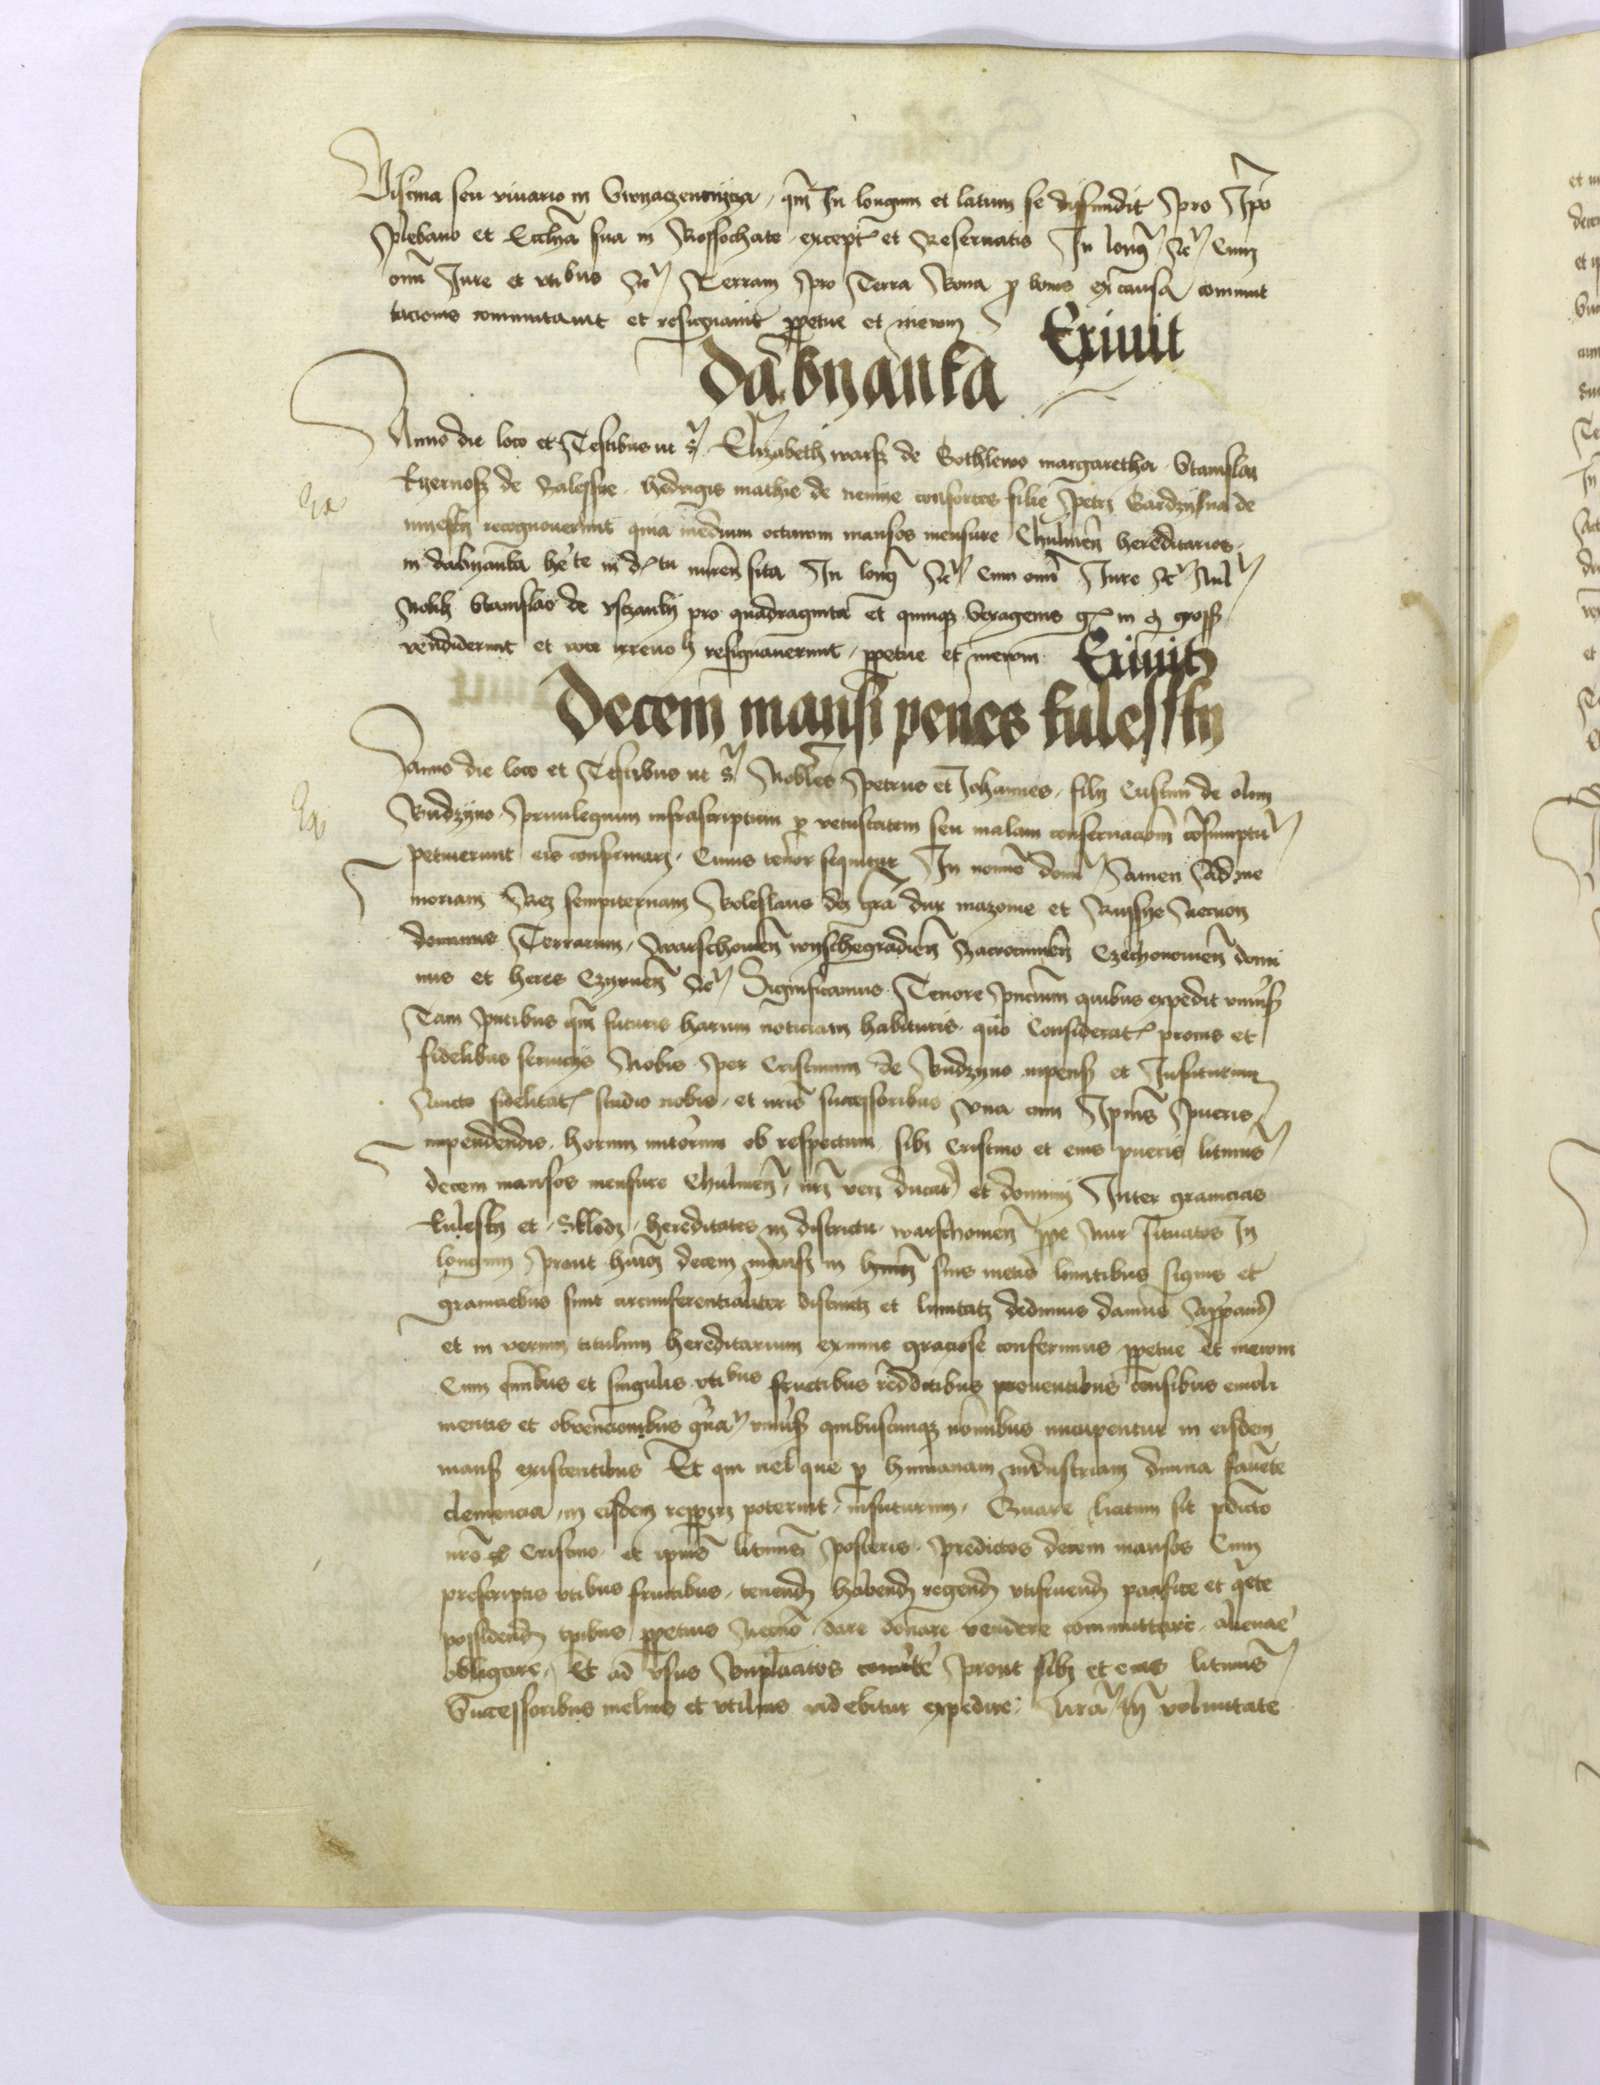 Piscina seu viuario in qm In longum et latum se diffundit pro Ipo
plebano et Ecclia sua in Rossochate except et Reseruatis In long etc Cum
omi Iure et vtibus etc Terram pro Terra bona p bonis ex causa commut
tacionis commutauit et resignauit ppetue et in ewm Exiuit
dabyanka
Anno die loco et Testibus ut s Elizabeth warss de Gothlewo margaretha Stanislai
de Zalesske hedvigis mathie de consortes filie petri de
recognouerunt quia medium octauum mansos mensure Chulmen hereditarios
in dabyanka hete in dtu nuren sita In long etc Cum omi Iure etc
Nobili Stanislao de pro quadraginta et quinqz sexagenis in gross
vendiderunt et resignauerunt ppetue et in ewm Exiuit
Decem mansi penes kulesski
Anno die loco et Testibus ut s Nobiles petrus et Johannes filij Cristini de olim
Budzyno priuilegium infrascriptum p vetustatem seu malam conseruaciom cosumptu
petiuerunt eis confirmari Cuius tenor sequitur In nomine domi amen Ad me
moriam Rei sempiternam Boleslaus dei gra dux mazouie et Russye Necnon
dominus Terrarum warschouien wyschegradien Zacrocimen Czechonouien domi
nus et heres Czyrnen etc Significamus Tenore pncium quibus expedit vniuss
Tam pntibus qm futuris harum noticiam habituris quo Considerat pronis et
fidelibus seruicijs Nobis per Cristinum de Budzyno inpenss et Infuturum
Aucto fidelitat studio nobis et nris successoribus vna cum Ipius pueris
inpendendis horum intuitu ob respectum sibi Cristino et eius pueris litimis
decem mansos mensure Chulmen nri veri ducat et dominij Inter granicias
kuleski et Sklody hereditates in districtu warschouien ppe Nur situatos In
longum prout huiusmodi decem manss in suis metis limitibus signis et
graniciebus sunt circumferentialiter distincti et limitati dedimus damus
et in verum titulum hereditarium eximie graciose conferimus ppetue et in ewm
Cum omibus et singulis vtibus fructibus redditibus prouentibus censibus emoli
mentis et obvencionibus vniuss quibuscunqz nominibus nuncupentur in eisdem
manss existentibus Et qui uel que p humanam industriam diuina fauente
clemencia in eisdem repperiri poterint infuturum Quare licitum sit pdicto
nro Cristino et ipius litimis posteris predictos decem mansos Cum
prescriptis vtibus fructibus tenendi habendi regendi vtifruendi pacifice et qete
possidendi ppetuis Necno dare donare vendere committare alienare
obligare Et ad vsus bnplacitos prout sibi et eius litimis
Successoribus melius et vtilius videbitur expedire Nra voluntate